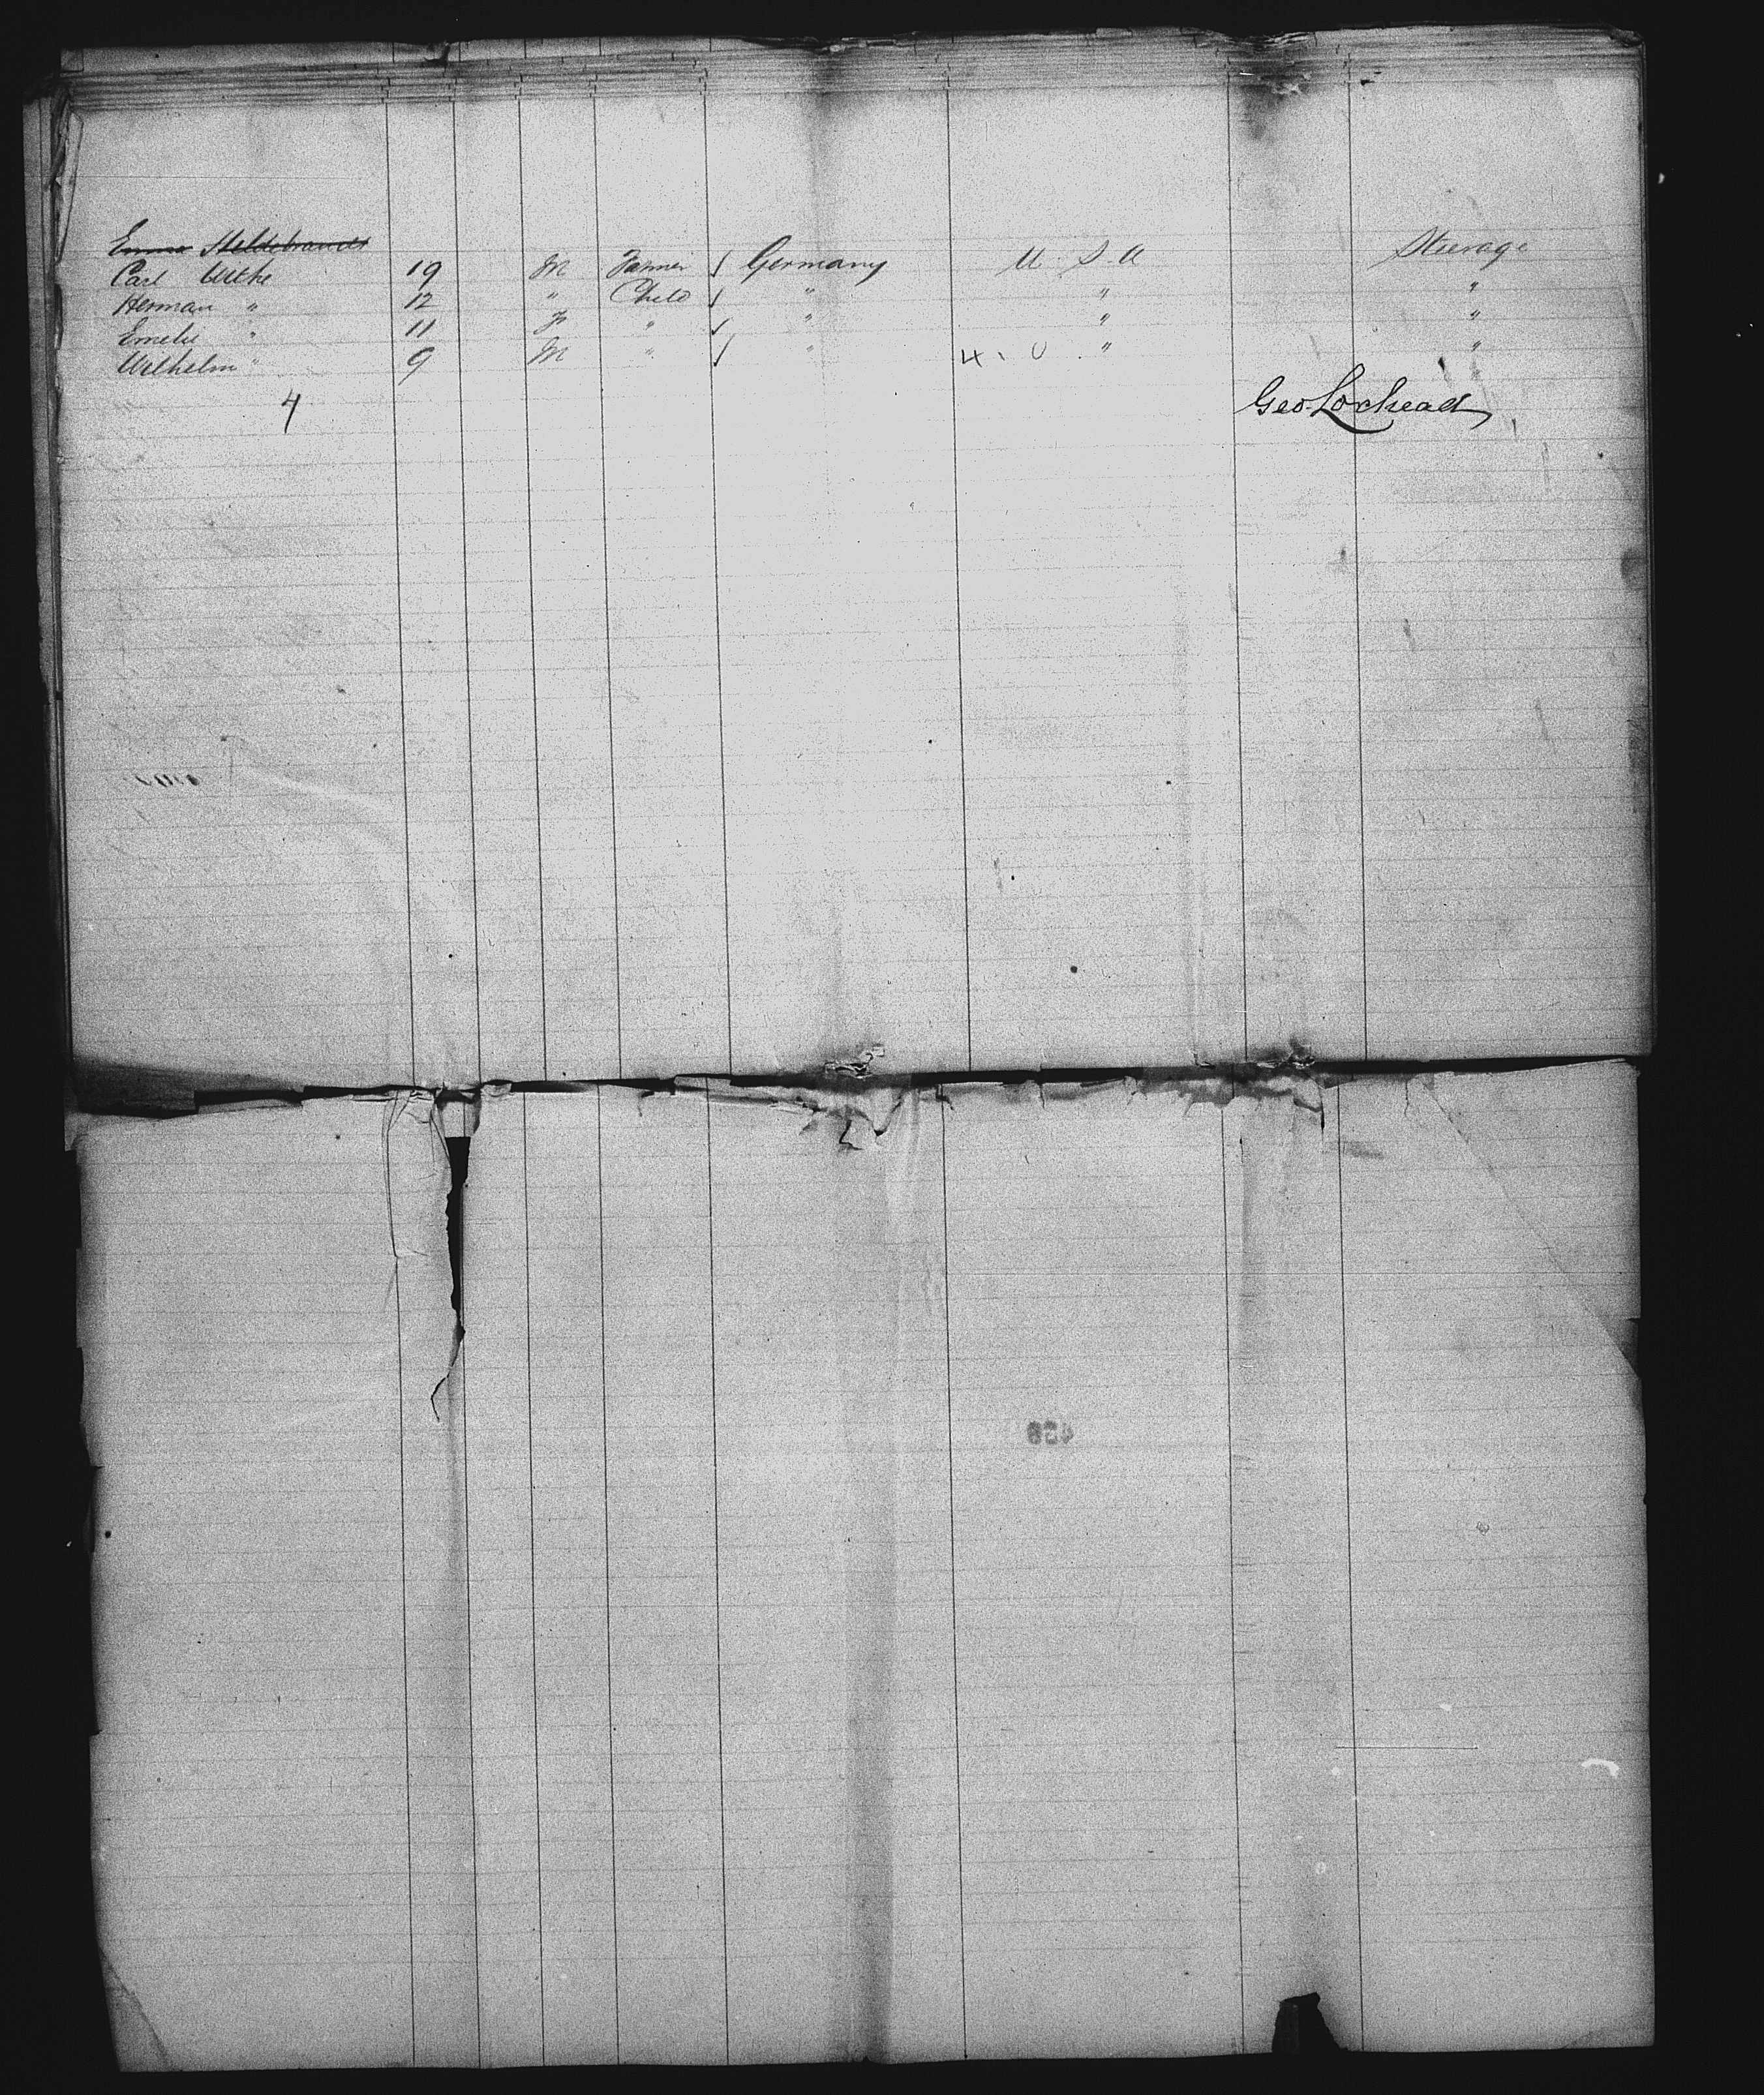 Emma Hildebrandt
Carl Witke 19 M Farmer √ Germany U. S. A Steerage
Herman " 12 " Child √ " " "
Emelie " 11 F " √ " " "
Wilhelm " 9 M " √ " 4. 0 . " "
4 Geo. Lochead